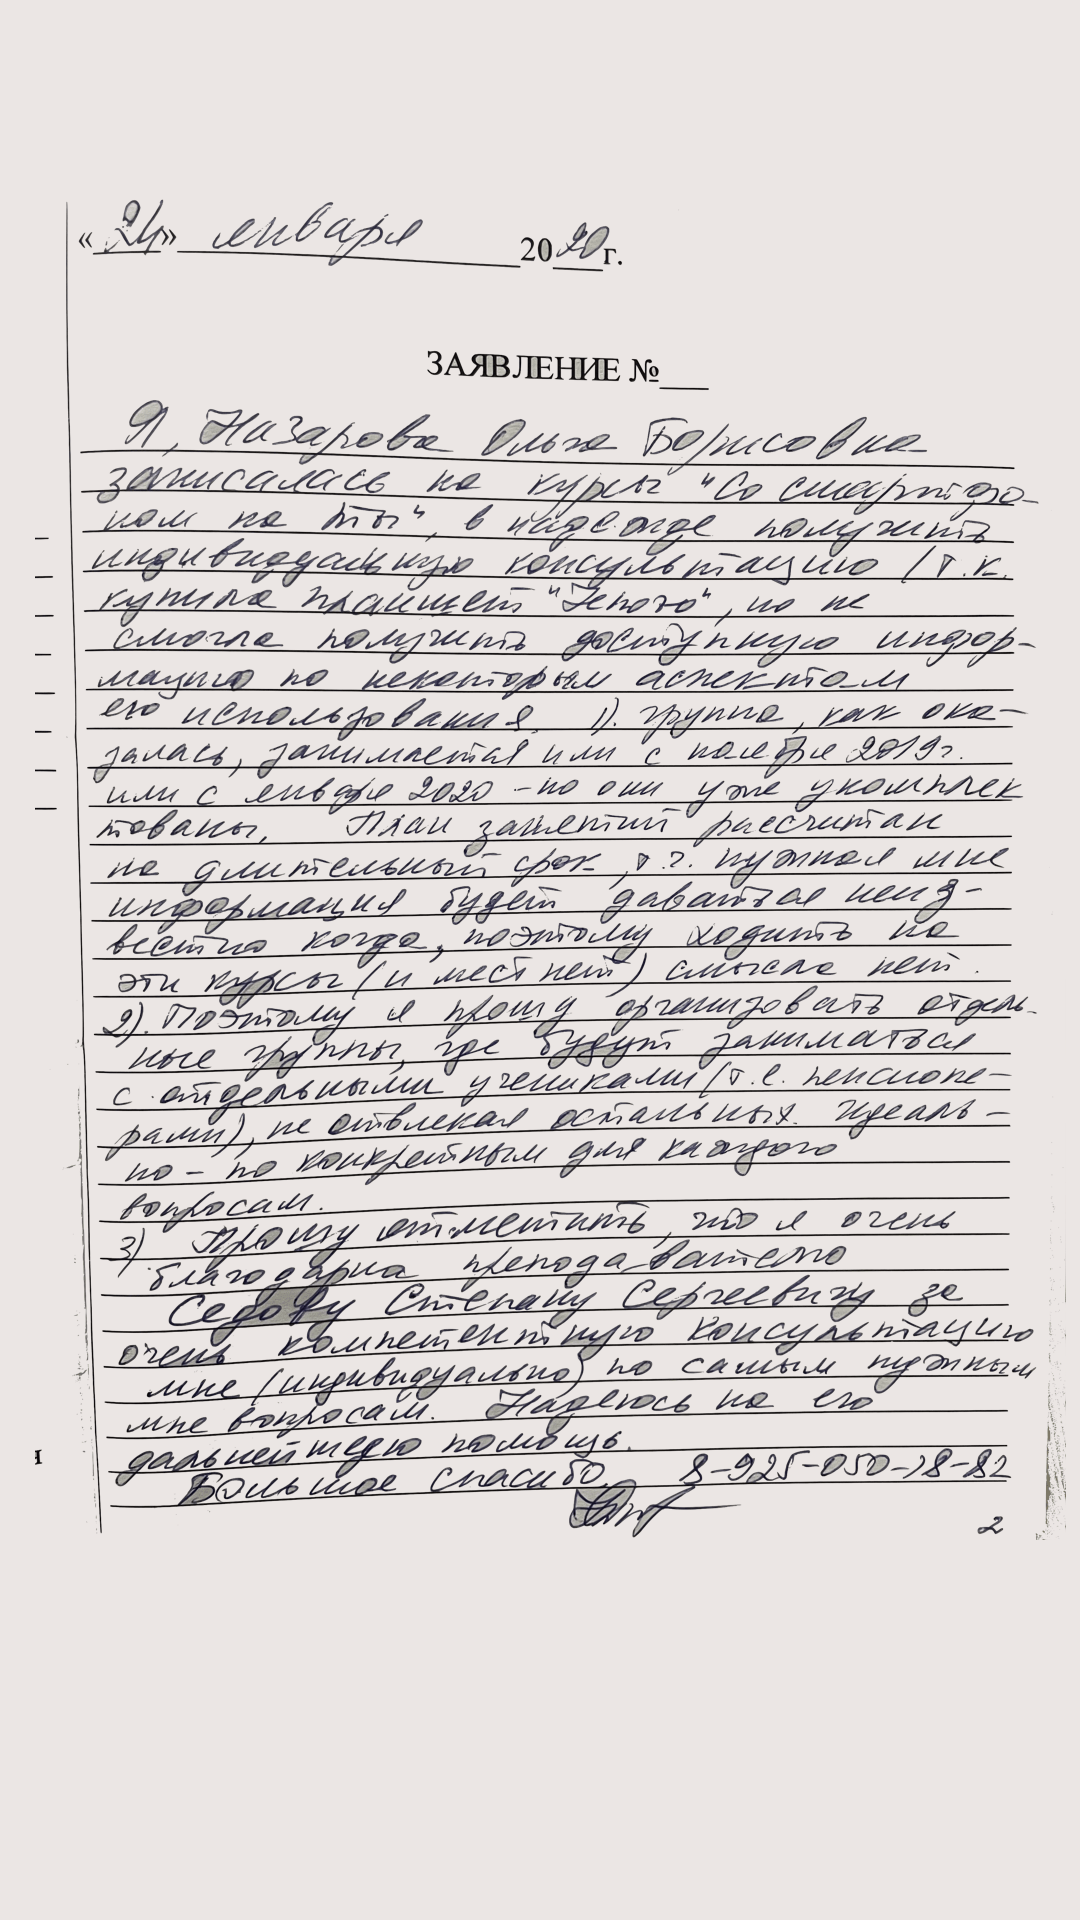 «24» января 2020 г.
ЗАЯВЛЕНИЕ №___
Я, Назарова Ольга Борисовна
записалась на курсы "Со смартфо-
ном на ты", в надежде получить
индивидуальную консультацию (т.к.
купила планшет "Леново", но не
смогла получить доступную инфор-
мацию по некоторым аспектам
его использования. 1). группа, как ока-
залась, занимается или с ноября 2019г.
или с января 2020 - но они уже укомплек
тованы. План занятий рассчитан
на длительный срок, т.ч. нужная мне
информация будет даваться неиз-
вестно когда, поэтому ходить на
эти курсы (и мест нет) смысла нет.
2). Поэтому я прошу организовать отдель-
ные группы, где будут заниматься
с отдельными учениками (т.е. пенсионе-
рами), не отвлекая остальных. Идеаль-
но - по конкретным для каждого
вопросам.
3) Прошу отметить, что я очень
благодарна преподавателю
Седову Степану Сергеевичу за
очень компетентную консультацию
мне (индивидуально) по самым нужным
мне вопросам. Надеюсь на его
дальнейшую помощь.
Большое спасибо. 8-925-050-18-82
2